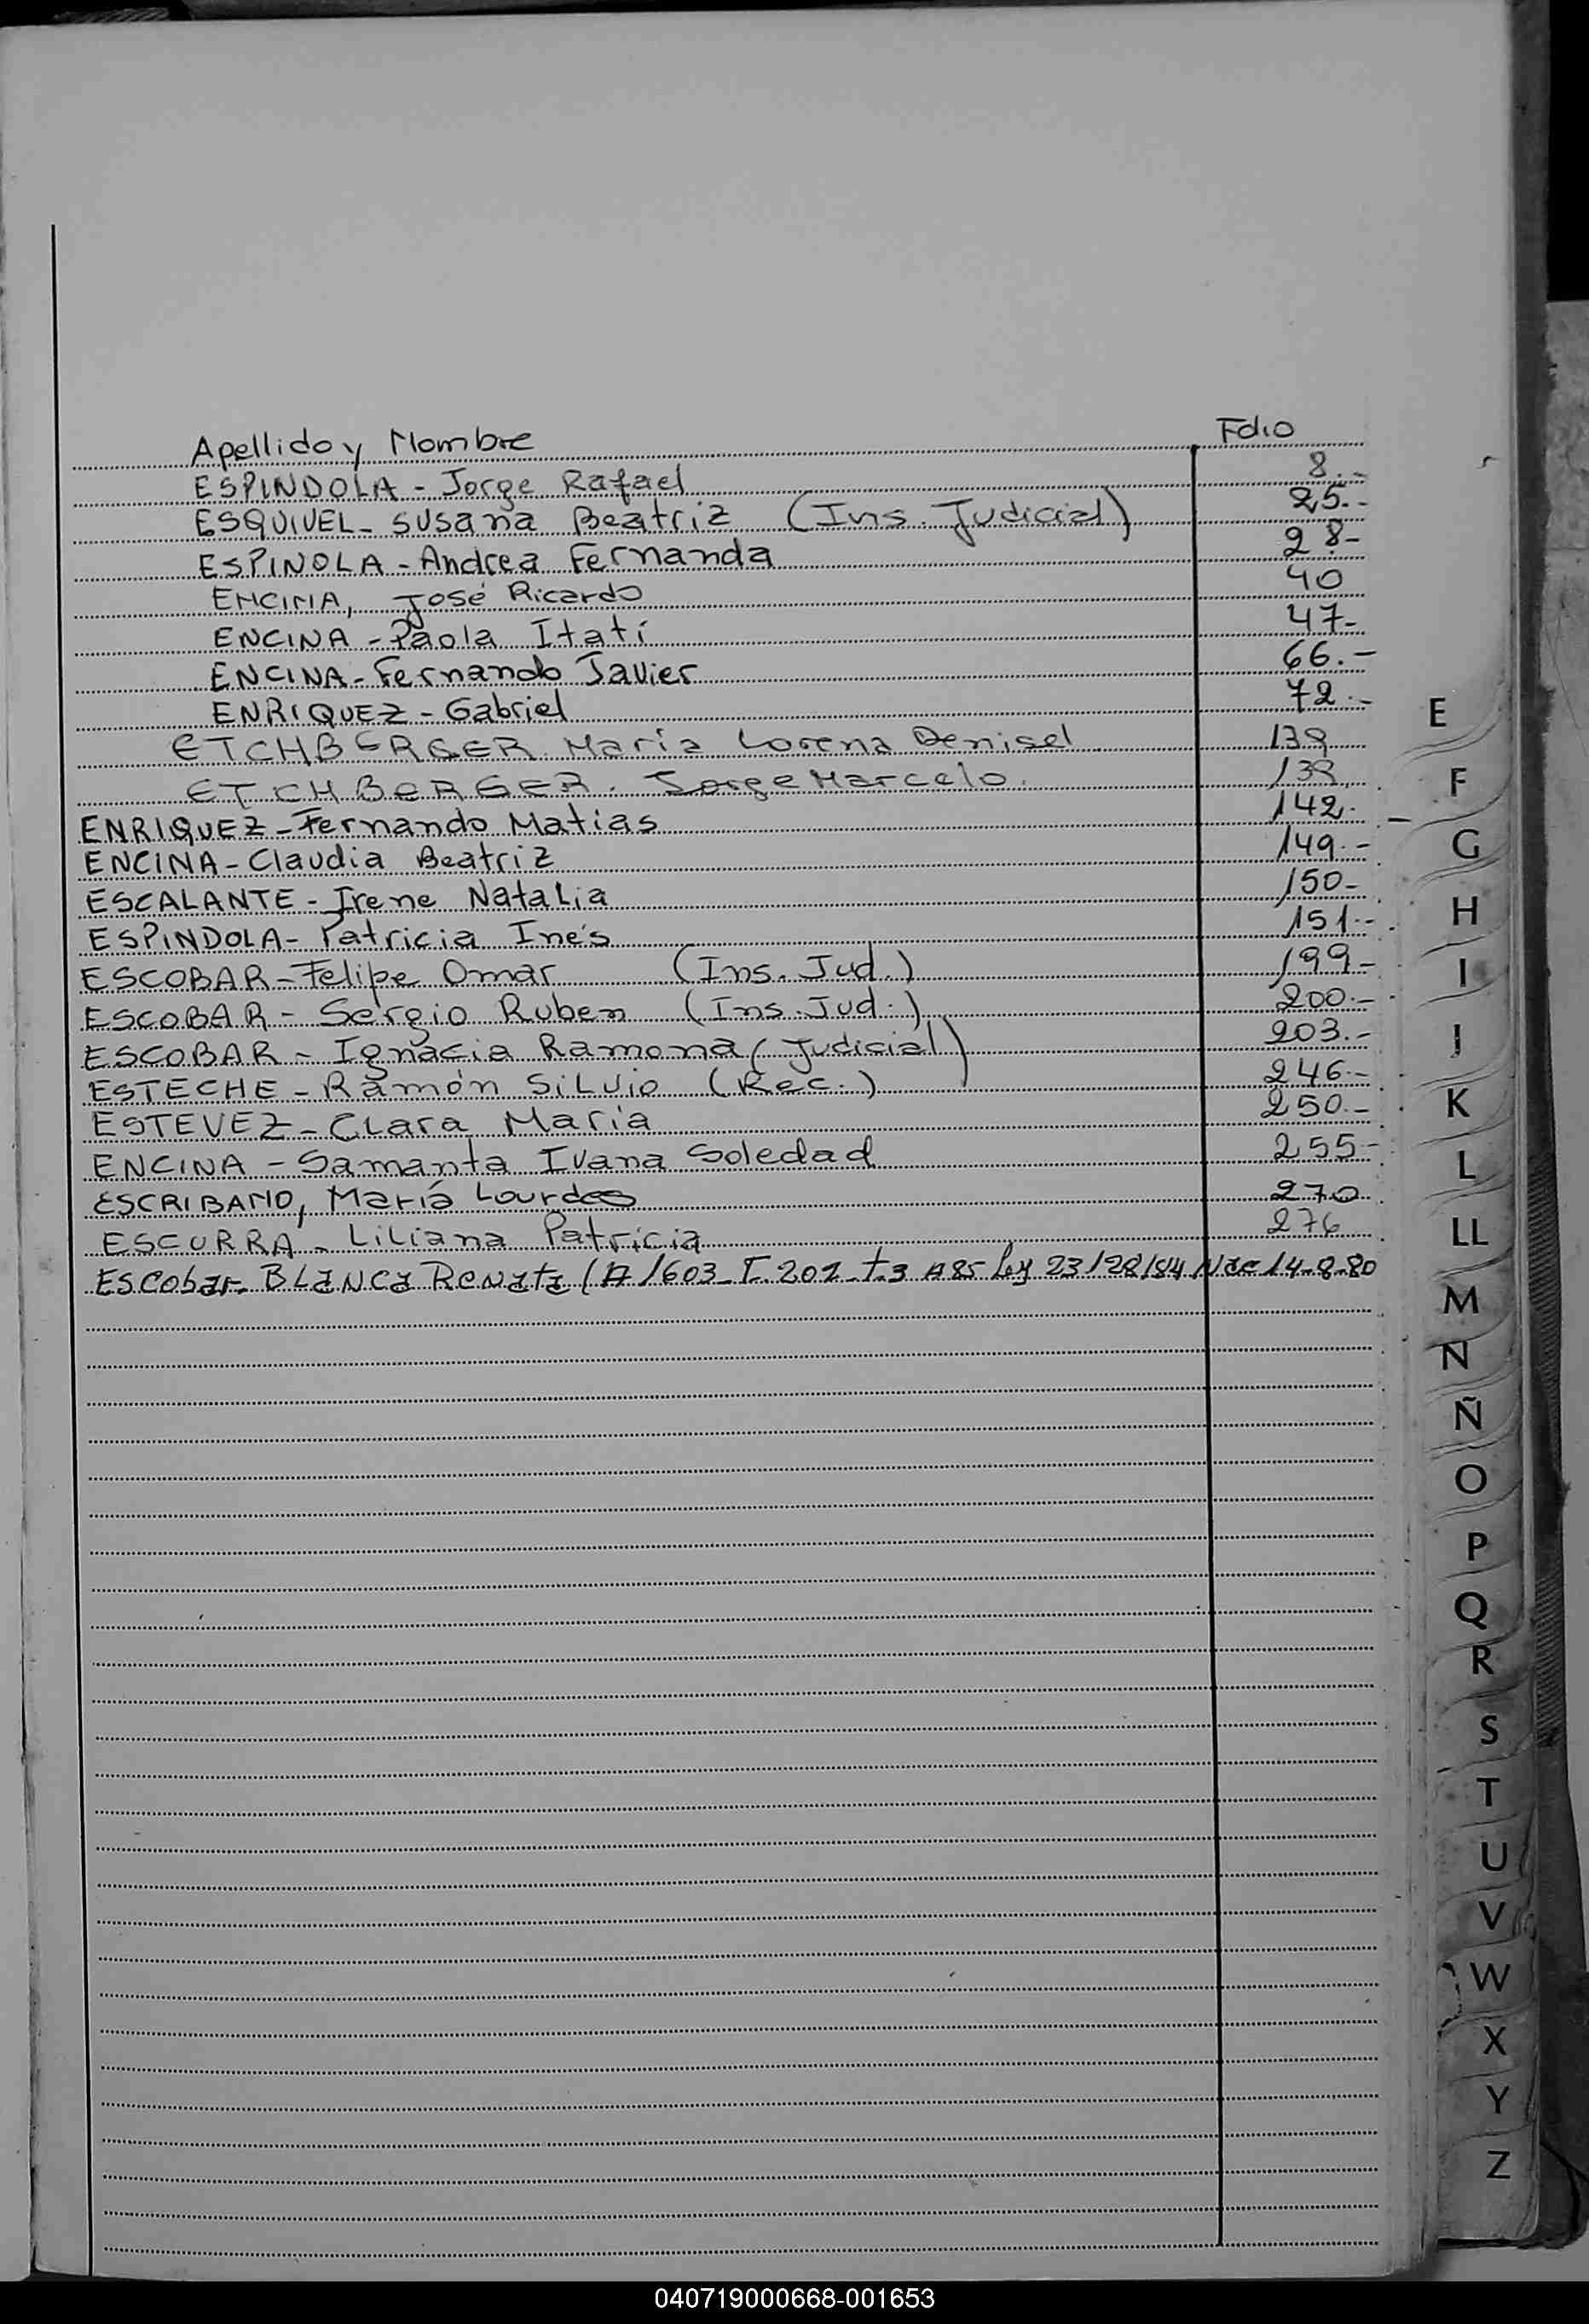 Apellido y Nombre Folio
ESPINDOLA - Jorge Rafael 8.-
ESQUIVEL - Susana Beatriz (Ins. Judicial) 25.-
ESPINOLA - Andrea Fernanda 28-
ENCINA, José Ricardo 40
ENCINA - Paola Itatí 47-
ENCINA - Fernando Javier 66.-
ENRIQUEZ - Gabriel 72.-
ETCHBERGER. María Lorena Denisel 139
ETCHBERGER. Jorge Marcelo. 139
ENRIQUEZ - Fernando Matias 142.-
ENCINA - Claudia Beatriz 149.-
ESCALANTE - Irene Natalia 150-
ESPINDOLA - Patricia Inés 151.-
ESCOBAR - Felipe Omar (Ins. Jud.) 199-
ESCOBAR - Sergio Ruben (Ins. Jud.) 200.-
ESCOBAR - Ignacia Ramona (Judicial) 203.-
ESTECHE - Ramón Silvio (Rec.) 246.-
ESTEVEZ - Clara María 250.-
ENCINA - Samanta Ivana Soledad 255-
ESCRIBANO, María Lourdes 270
ESCURRA - Liliana Patricia 276
Escobar - Blanca Renata (A/603 - F. 201 - t.3 A 85 Ley 23/28/84 Nac 14-8-80
E
F
G
H
I
J
K
L
LL
M
N
Ñ
O
P
Q
R
S
T
U
V
W
X
Y
Z
040719000668-001653